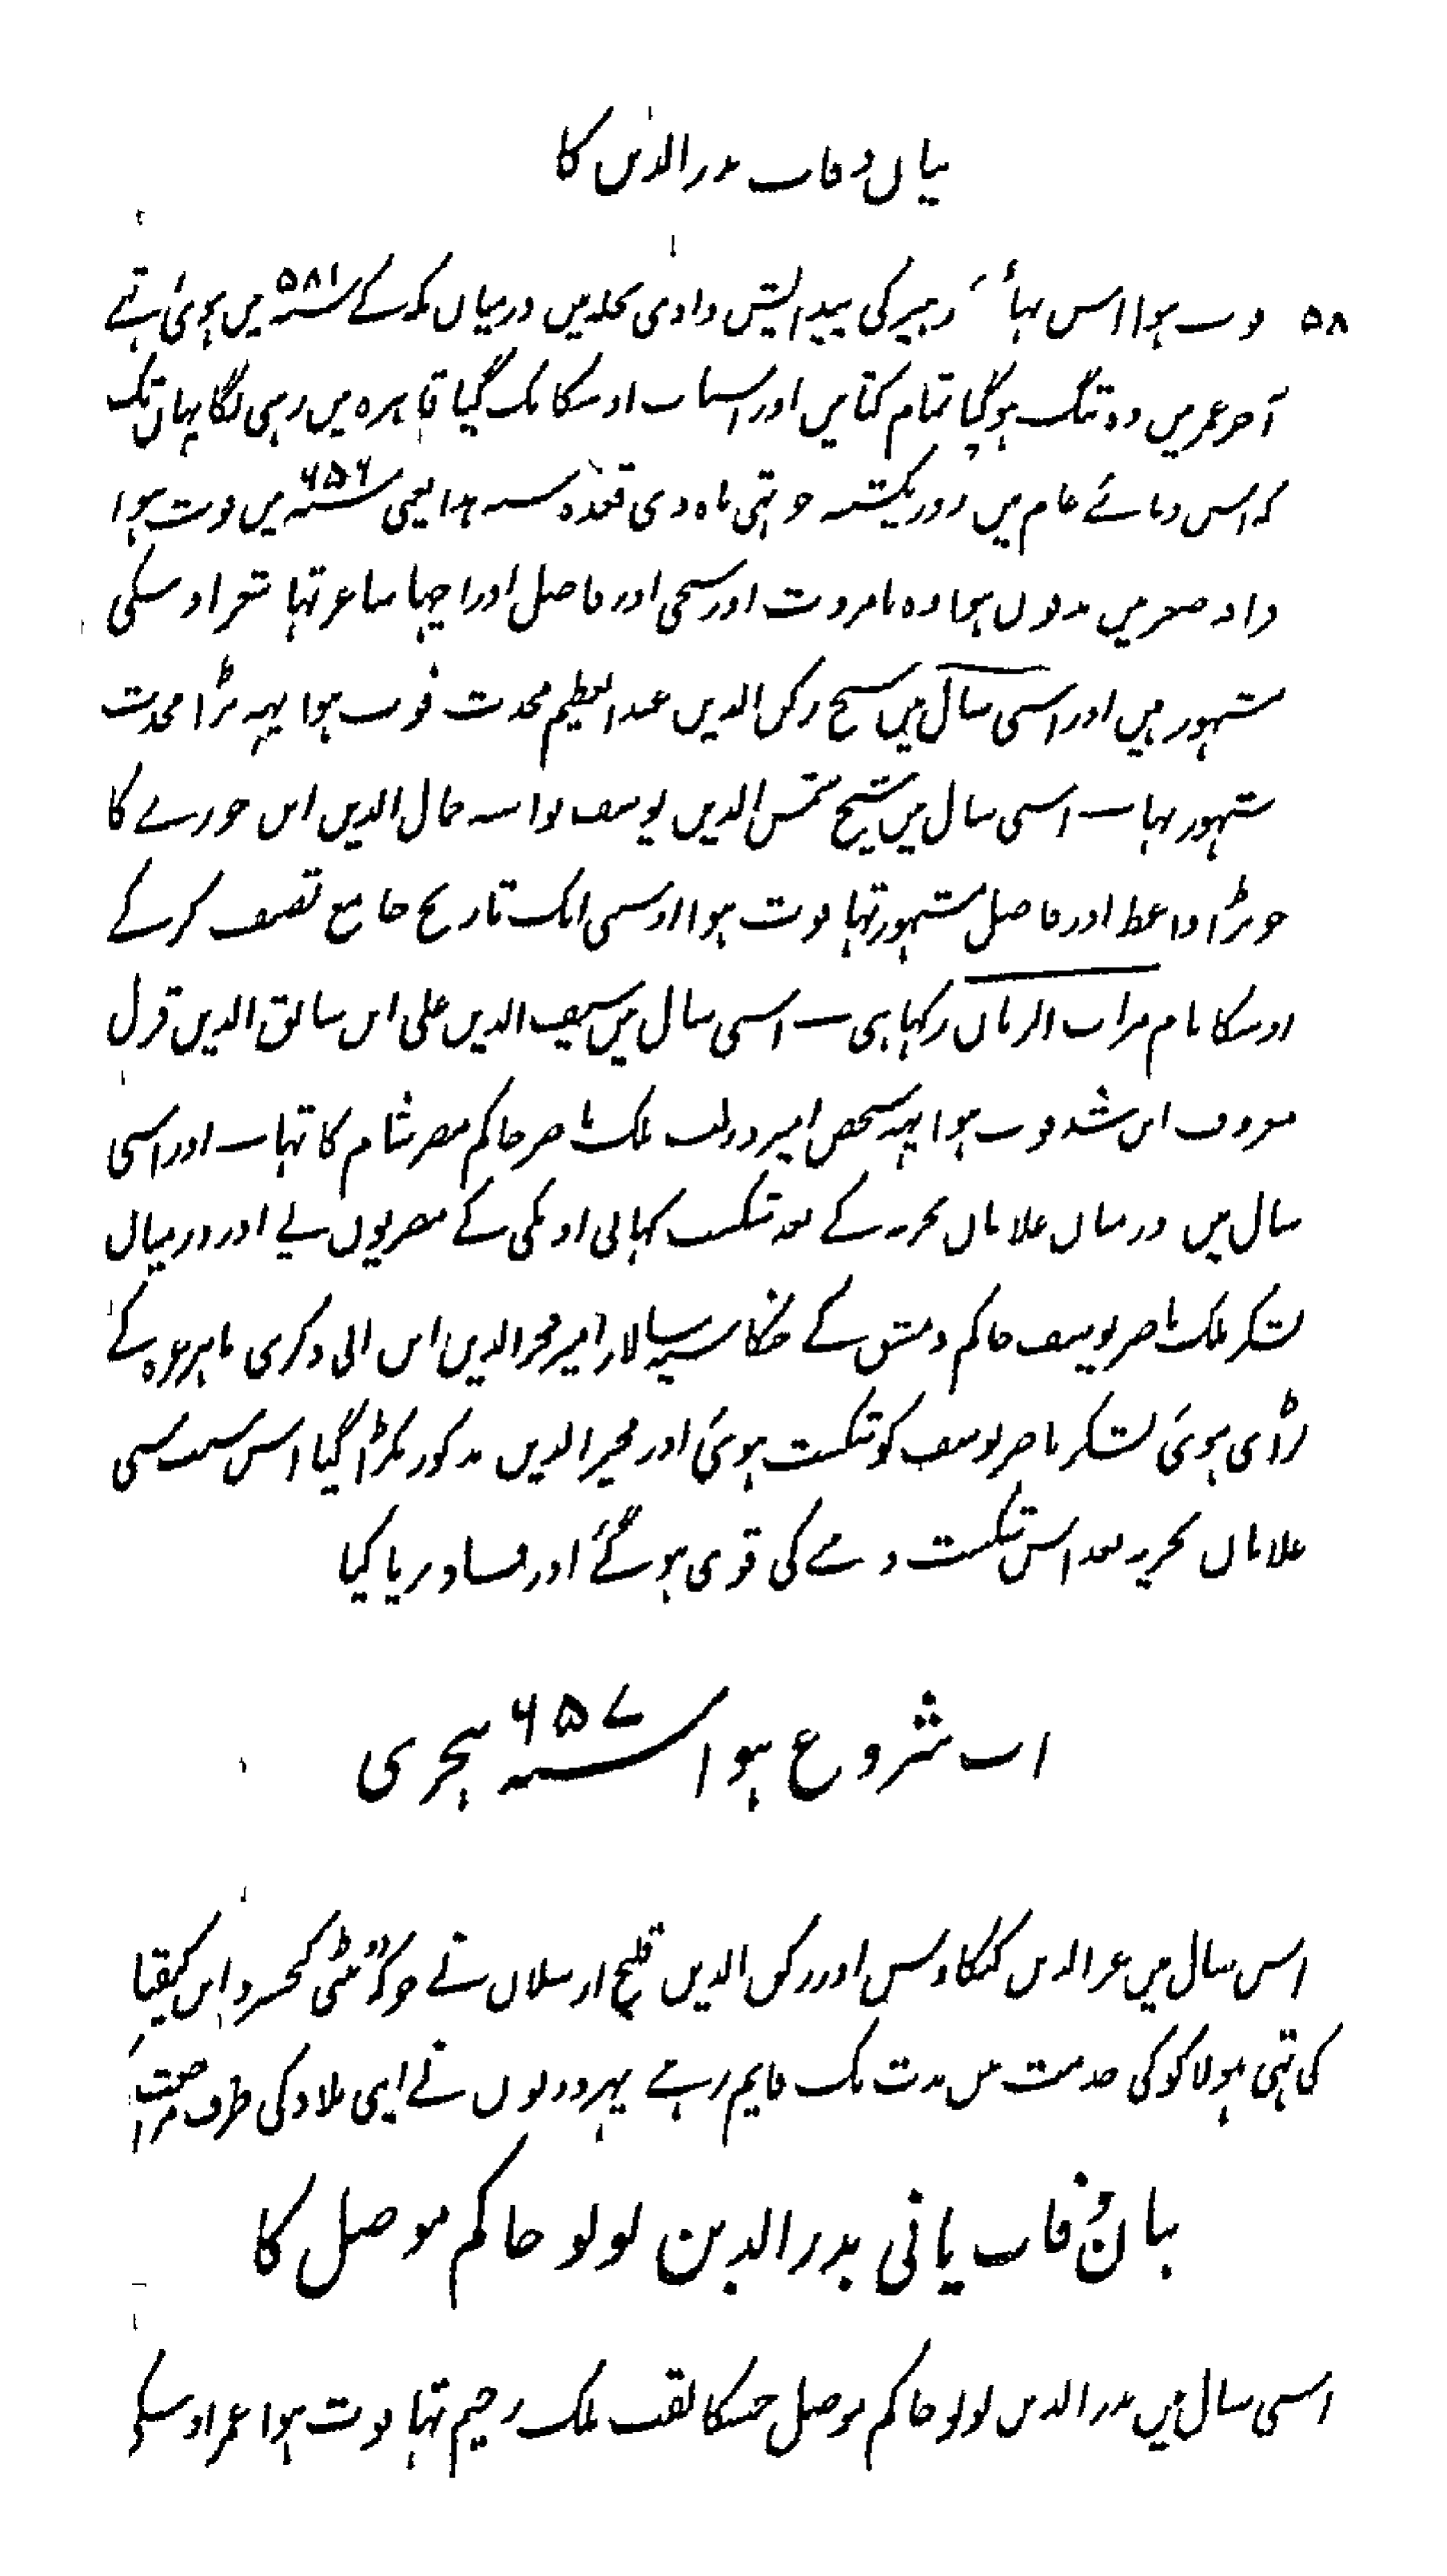 بیان وفات بدر الدین کا
۵۸ فوت ہوا اس بہا زہیر کی پیدایش وادی نخلہ میں درمیان مکہ کے سنہ ۵۸۱ میں ہوئی ہتے
آخر عمر میں وہ تنگ ہوگیا تمام کتابیں اور اسباب اوسکا بک گیا قاہرہ میں رہی لگا یہاں تک
کہ اس وبائے عام میں روز یکشنبہ چوتہی ماہ ذی قعدہ سنہ ہذا یعنی سنہ ۶۵۶ میں فوت ہوا
میں مدفون ہوا وہ بامروت اور سخی اور فاضل اور اچہا شاعر تہا شعر اوسکی
مشہور ہیں اور اسی سال میں شیخ زکی الدین عبد العظیم محدث فوت ہوا یہہ بڑا محدث
مشہور تہا ـ اسی سال میں شیخ شمس الدین یوسف نواسہ جمال الدین ابن جوزے کا
جو بڑا واعظ اور فاضل مشہور تہا فوت ہوا اوسی ایک تاریخ جامع تصنیف کرکے
اوسکا نام مرات الزمان رکہا ہی ـ اسی سال میں سیف الدین علی ابن سابق الدین قزل
معروف ابن مشد فوت ہوا یہہ شخص امیر دولت ملک ناصر حاکم مصر شام کا تہا ـ اور اسی
سال میں درمیان غلامان بحریہ کے بعد شکست کہانی اونکی کے مصریوں سے اور درمیان
لشکر ملک ناصر یوسف حاکم دمشق کے جنکا سپہ سالار امیر مجیر الدین ابن ابی ذکری باہر غزہ کے
لڑائی ہوئی لشکر ناصر یوسف کو شکست ہوئی اور مجیر الدین مذکور پکڑا گیا اس سبب سی
غلامان بحریہ بعد اس شکست دےنے کی قوی ہوگئے اور فساد برپا کیا
اب شروع ہوا سنہ ۶۵۷ ہجری
اس سال میں عز الدین کیکاوس اور رکن الدین قلیج ارسلان نے جو کہ بیٹی کیخسرو ابن کیقباد
کی تہی ہولاکو کی خدمت میں مدت تک قایم رہے پہر دونوں نے اپنی بلاد کی طرف مراجعت
بیان وفات پانی بدر الدین لولو حاکم موصل کا
اسی سال میں بدر الدین لولو حاکم موصل جسکا لقب ملک رحیم تہا فوت ہوا عمر اوسکی